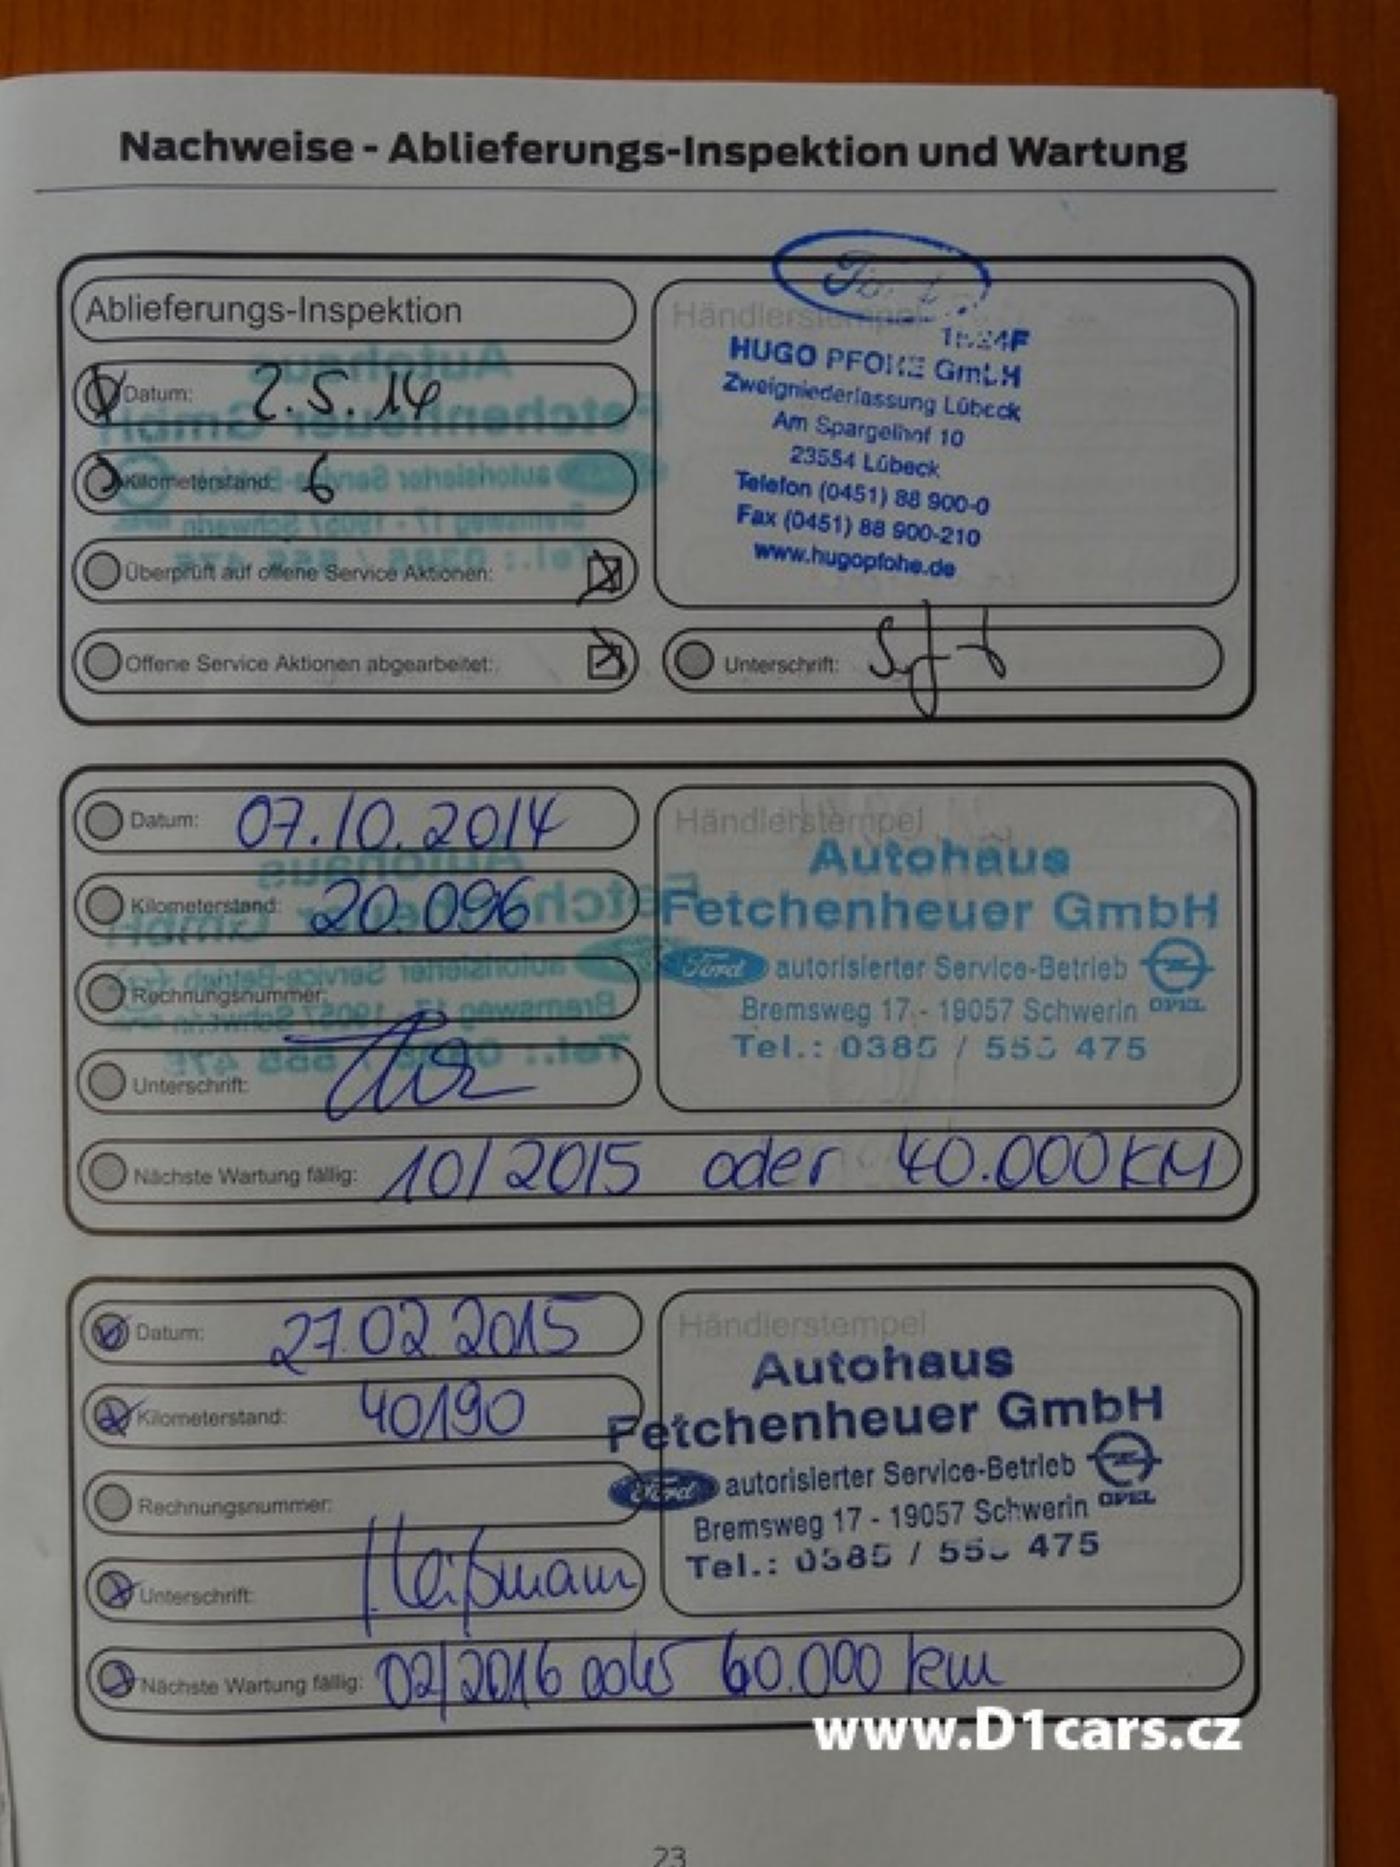 Nachweise - Ablieferungs-Inspektion und Wartung
Ablieferungs-Inspektion
Datum: 2.5.14
Kilometerstand: 6
Überprüft auf offene Service Aktionen:
Offene Service Aktionen abgearbeitet:
Händlerstempel
Ford
HUGO PFOHE GmbH
Zweigniederlassung Lübeck
Am Spargelhof 10
23554 Lübeck
Telefon (0451) 88 900-0
Fax (0451) 88 900-210
www.hugopfohe.de
Unterschrift:
Datum: 07.10.2014
Kilometerstand: 20.096
Rechnungsnummer:
Unterschrift:
Händlerstempel
Autohaus
Fetchenheuer GmbH
Ford autorisierter Service-Betrieb
Bremsweg 17 - 19057 Schwerin OPEL
Tel.: 0385 / 555 475
Nächste Wartung fällig: 10/2015 oder 40.000 KM
Datum: 27.02.2015
Kilometerstand: 40190
Rechnungsnummer:
Unterschrift:
Händlerstempel
Autohaus
Fetchenheuer GmbH
Ford autorisierter Service-Betrieb
Bremsweg 17 - 19057 Schwerin OPEL
Tel.: 0385 / 555 475
Nächste Wartung fällig: 02/2016 oder 60.000 km
www.D1cars.cz
23